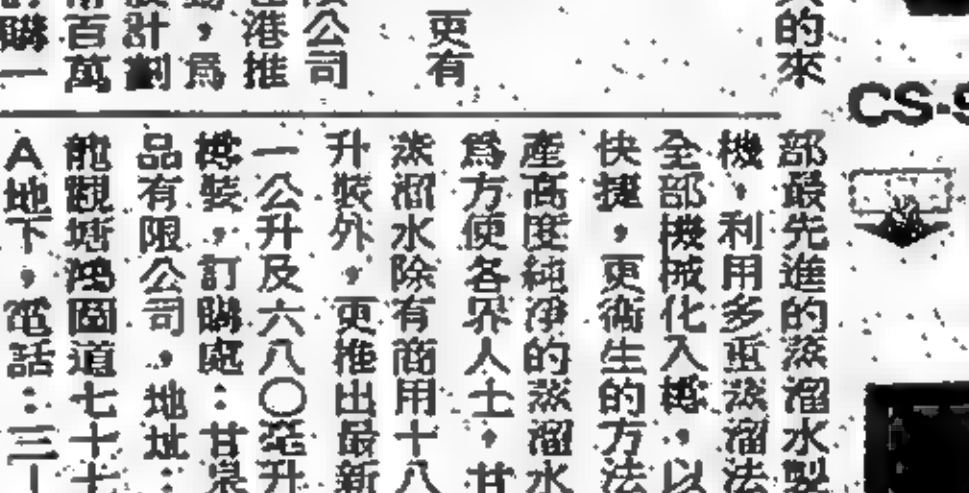 的來
更有
公司
港推
，爲
計劃
百萬
購一
CS-S
部最先進的蒸溜水製
機，利用多重蒸溜法
全部機械化入樽，以
快捷，更衞生的方法
產高度純淨的蒸溜水
爲方便各界人士，甘
蒸溜水除有商用十八
升裝外，更推出最新
一公升及六八〇毫升
樽裝，訂購處：甘泉
品有限公司，地址：
龍觀塘鴻圖道七十七
A地下，電話：三一